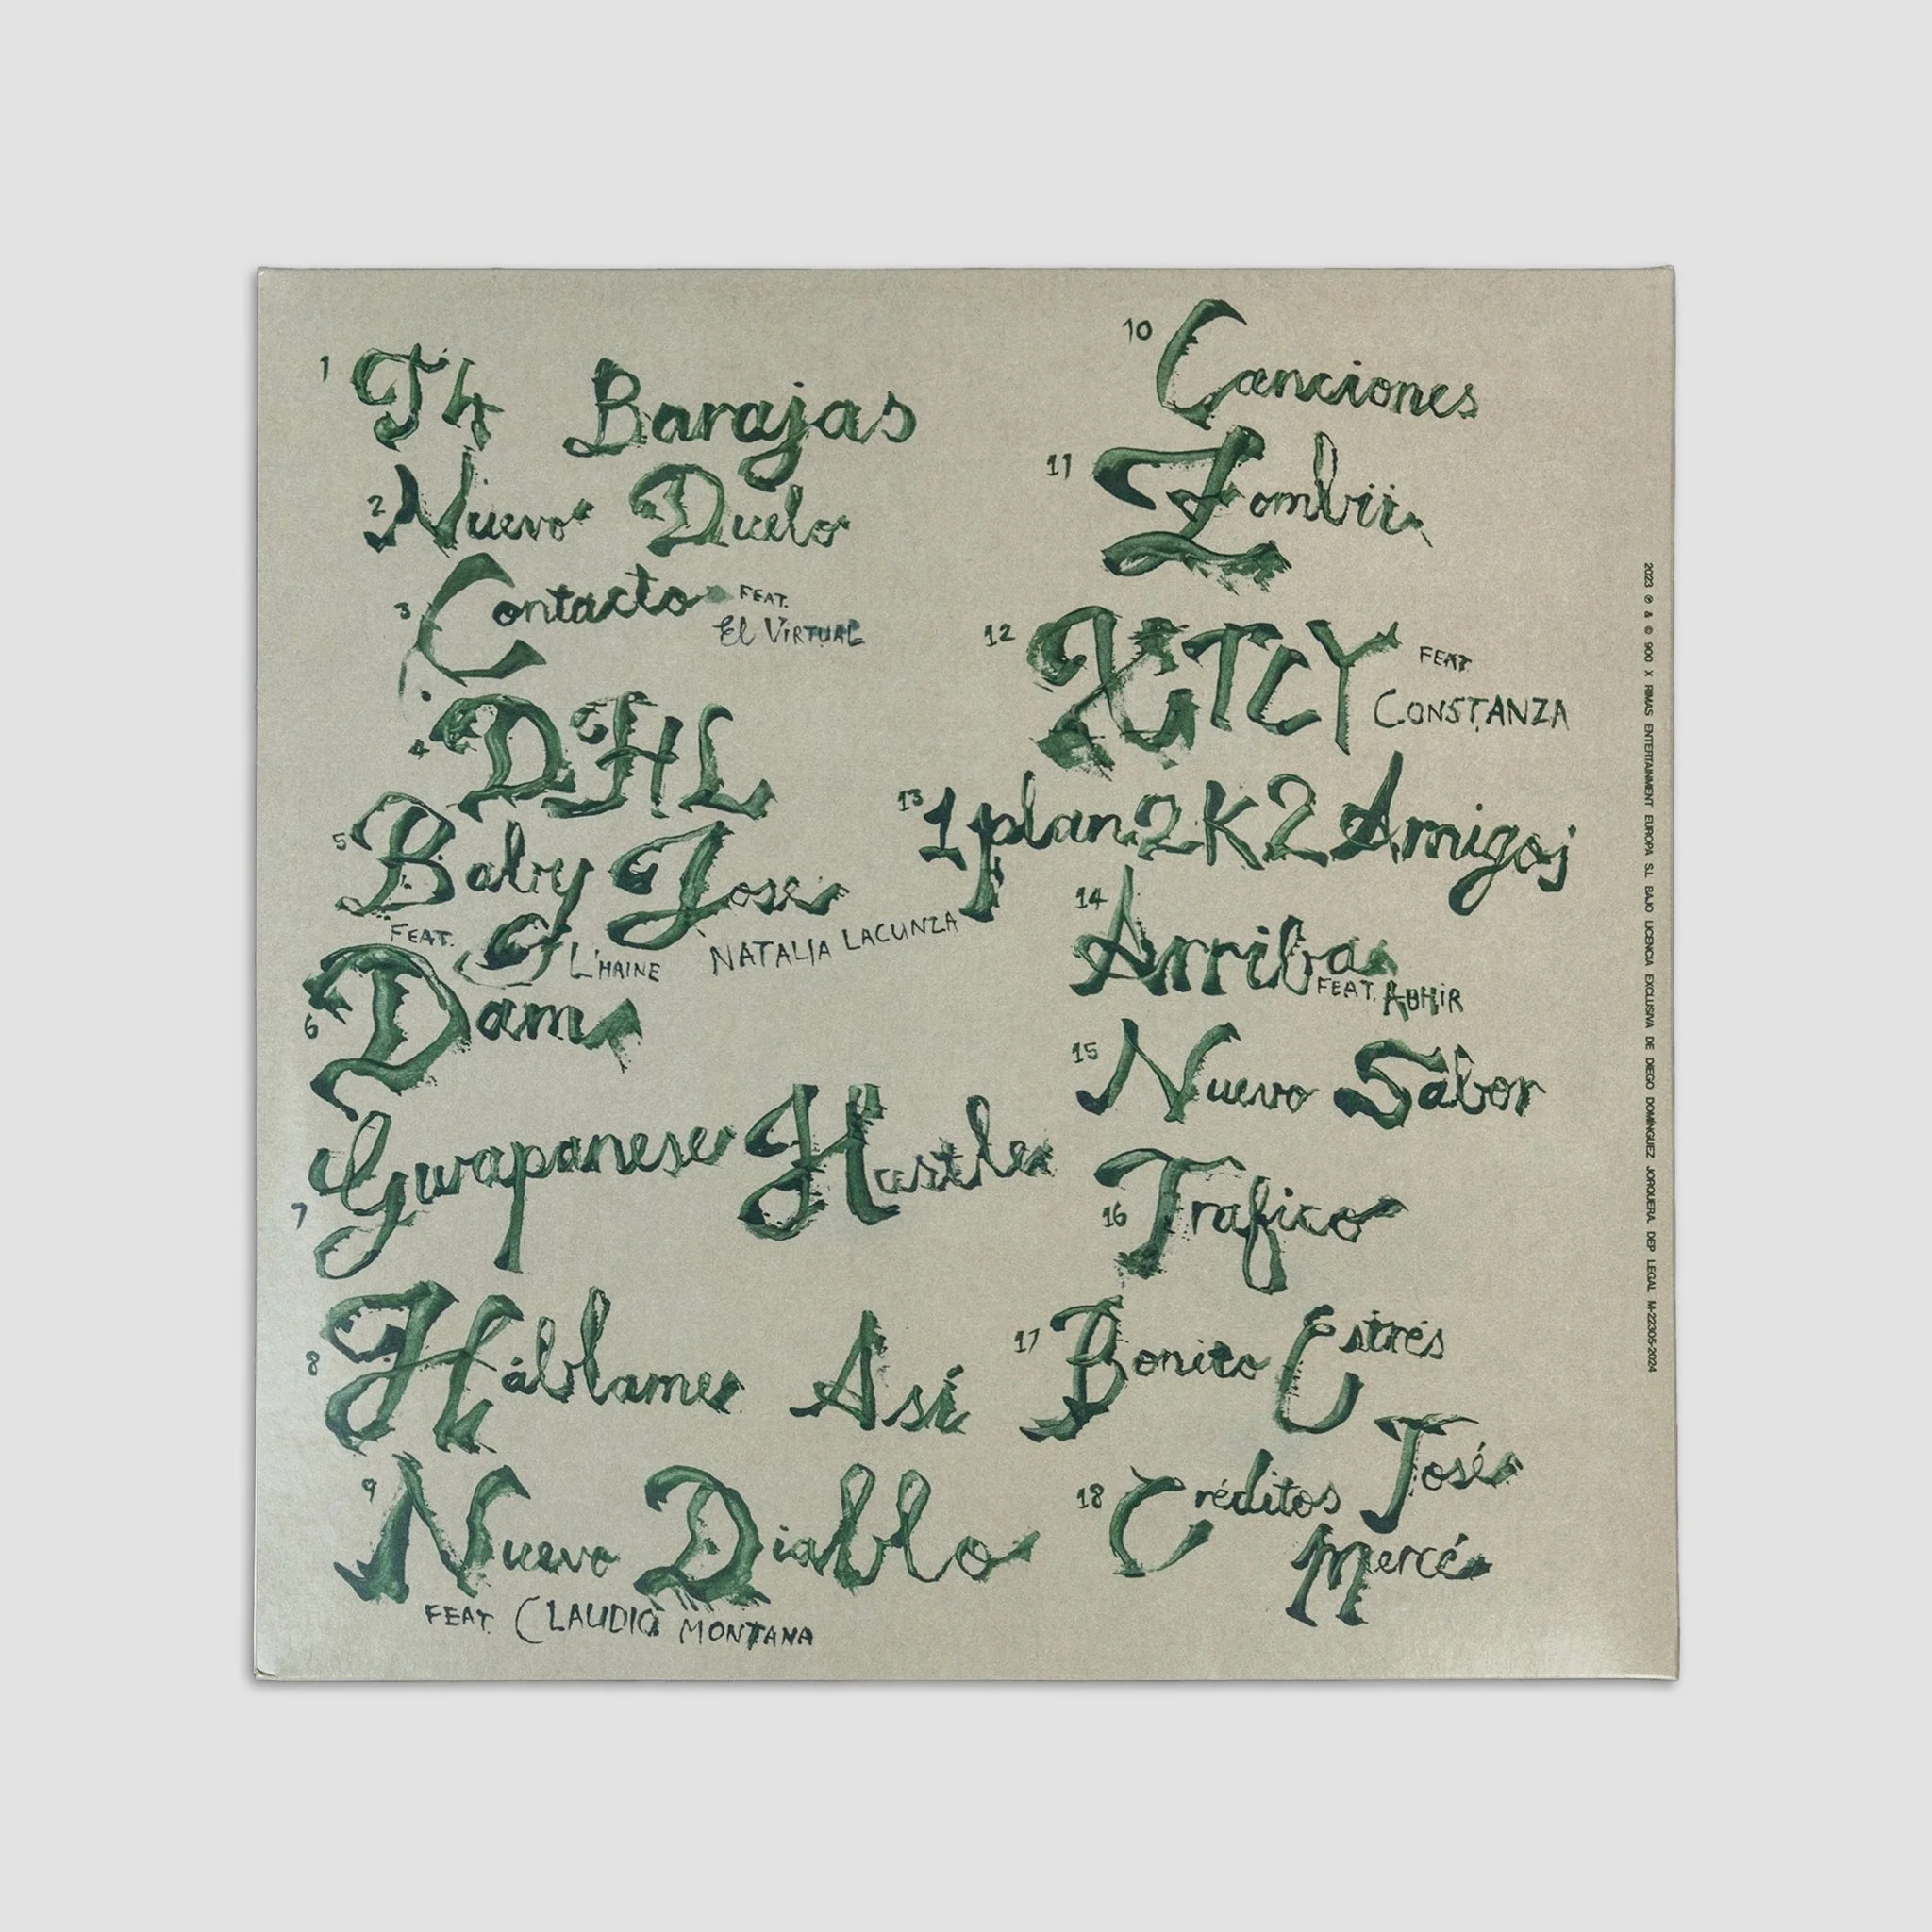 1 T4 Barajas
2 Nuevo Duelo
3 Contacto FEAT.
El VIRTUAL
4 DHL
5 Baby José
FEAT. L'HAINE NATALIA LACUNZA
6 Dam
7 Gwapanese Hustle
8 Háblame Así
9 Nuevo Diablo
FEAT. CLAUDIO MONTANA
10 Canciones
11 Zombii
12 XTCY FEAT
CONSTANZA
13 1plan2K2Amigos
14 Arriba
FEAT. ABHIR
15 Nuevo Sabor
16 Trafico
17 Bonito Estrés
18 Créditos José
Mercé
2023 ℗ & © 900 X RIMAS ENTERTAINMENT EUROPA S.L BAJO LICENCIA EXCLUSIVA DE DIEGO DOMINGUEZ JORQUERA. DEP LEGAL M-22305-2024